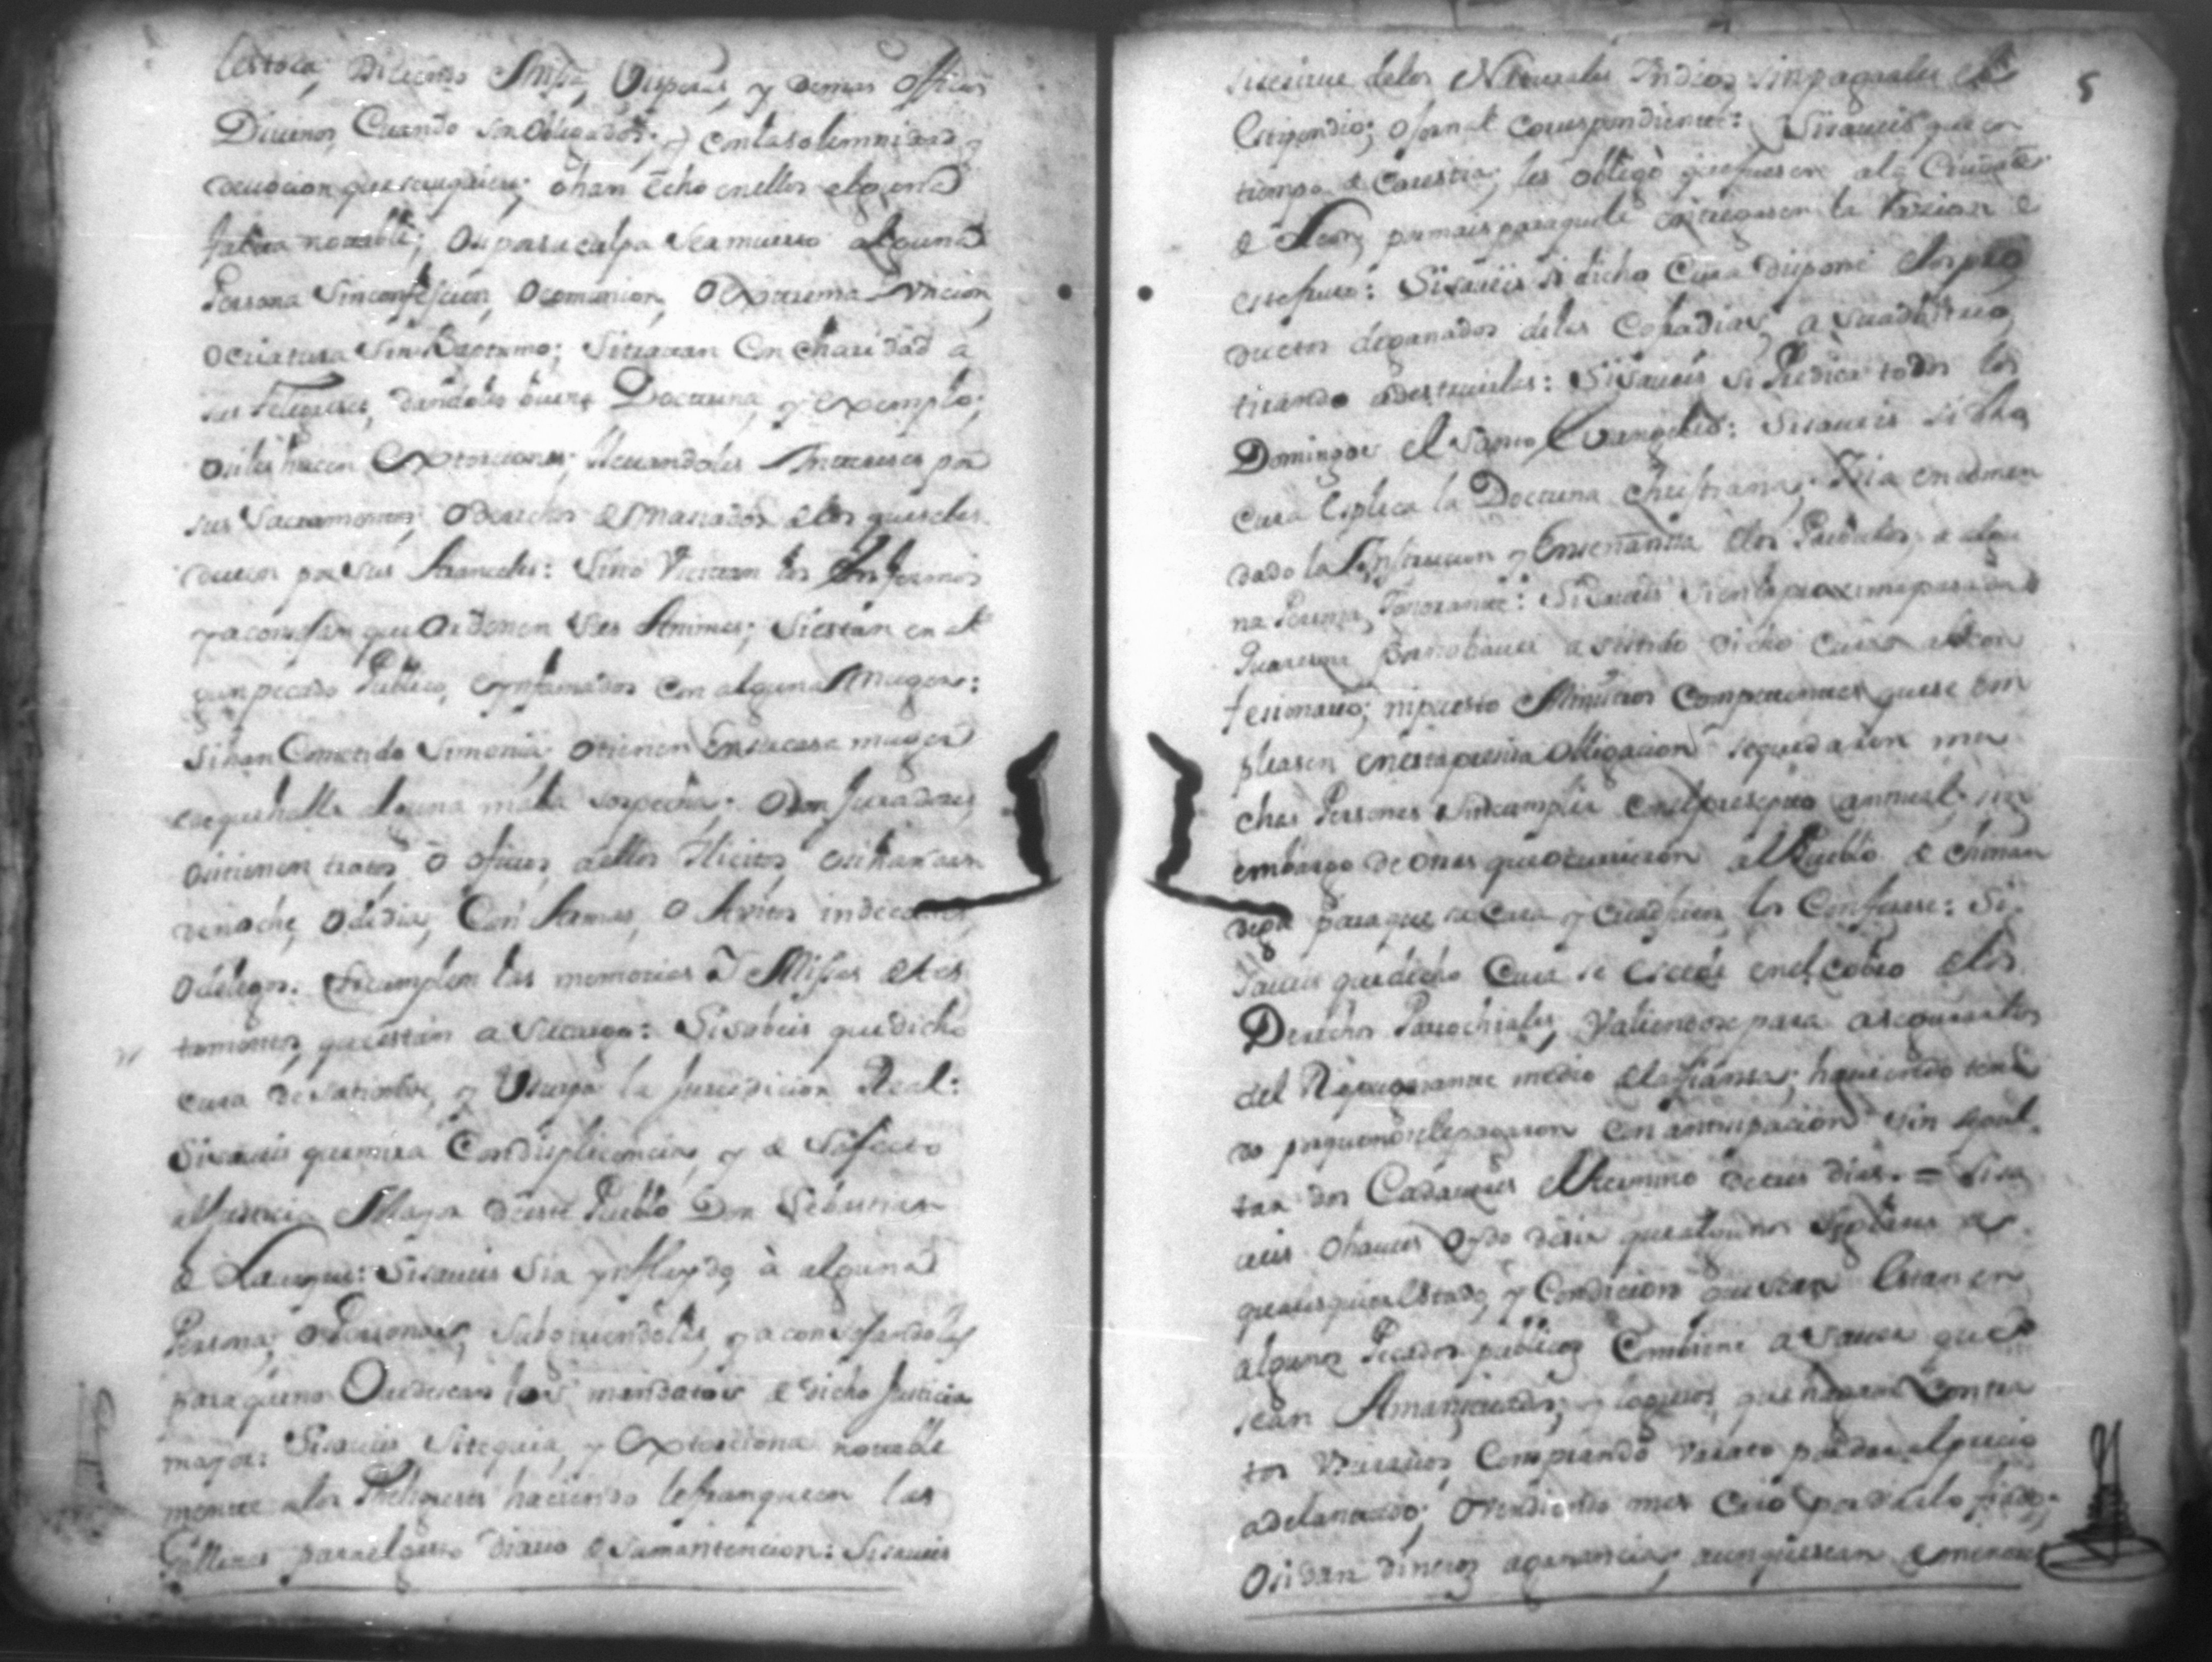 les toca, diciendo Missa, Visperas, y demas Officios
Divinos, Cuando son obligados; y con la solemnidad y
devocion que se requiere; ò han echo en ellos alguna
falta notable; O si por su culpa se a muerto alguna
Persona sin confession, O comunion, O Extrema Uncion,
O criatura sin Baptismo; si tratan Con charidad a
sus Feligreses, dandoles buena Doctrina, y exemplo;
o si les hacen Extorciones, llevandoles Intereses por
sus Sacramentos, O derechos demasiados de los que se les
deven por sus Aranceles: Si no Vicitan los Enfermos
y aconsejan que Ordenen sus Animas; si estan en al
gun pecado Publico, e ynfamados con alguna Muger:
si han Cometido Simonia, o tienen En su casa muger
en que halla alguna mala sospecha; O son Juradores,
o si tienen tratos, ò oficios, a ellos Ilicitos, o si han an
de noche, O de dia, Con Armas, O Avitos indecentes,
O de legos. Si cumplen las memorias Y Missas de tes
tamentos, que estan a su cargo: Si sabeis que dicho
cura de satiende, y Usurpa la Jurisdicion Real:
Si saveis que mira Con displicencia, y de safecto
al Justicia Mayor de este Pueblo Don Sebastian
Si saveis si a ynfluydo à alguna
Persona, O Personas, y aconsejandoles
para que no Ovedescan los mandatos de dicho Justicia
mayor: Si saveis si tequia, y Extorciona notable
mente a los Pheligreses haciendo le franqueen las
Gallinas para el gasto diario de su mantencion: Si saveis
5
si se sirve de los Naturales Yndios sin pagarles el
Estipendio; o Jornal correspondiente: Si saveis, que en
tiempo de Carestia, les obligò que fuesen a la Ciudad
de Leon, para que le entregasen la Racion de
este fruto: Si saveis si dicho Cura dispone de los pro
ductos de ganados de las Cofradias, a su advitrio,
tirando a destruirlas: Si saveis si Predica todos los
Domingos el Santo Evangelio: Si saveis si dho
Cura Esplica la Doctrina Christiana, Y si a encomen
dado la Instrucion y Enseñansa de los Parbulos, a algu
na Persona Ignorante: Si saveis si en la proxima pasada
Quaresma por no haver asistido dicho Cura al con
fesionario; ni puesto Ministros Competentes que se em
pleasen en esta precisa obligacion se quedaron mu
chas Personas sin cumplir con el presepto annual, sin
embargo de otras que ocurrieron al Pueblo de Chinan
dega para que su Cura y Coadjutor, los Confesase: Si
saveis que dicho Cura se excede en el cobro de los
Derechos Parrochiales, Valiendose para asegurarlos
del Repugnante medio de la fiansa, haviendo teni
do por que no se le pagaron con anticipacion sin sepul
tar dos Cadaveres el termino de tres dias. = Si sa
veis O haveis Oydo desir que algunos Seglares de
qualesquier Estado, y Condicion que sean Estan en
algunos Pecados publicos Combiene a saver que
sean Amancevados, y logreros, que hagan Contra
tos Usurarios, Comprando varato por dar el precio
adelantado; O vendiendo mas Caro por darlo fiado;
O si dan dineros a ganancia, aunque sean de menores